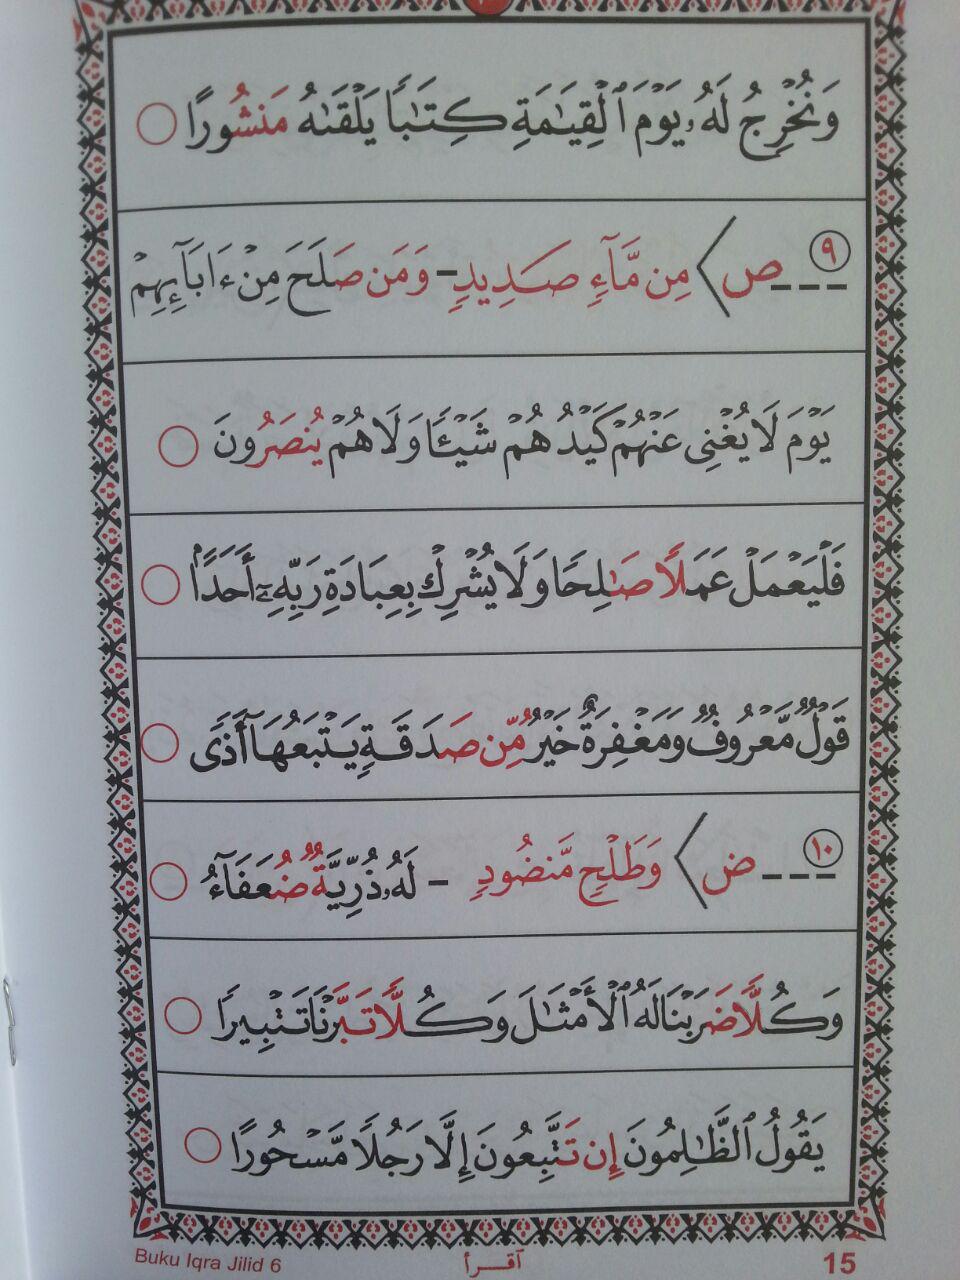 وَنُخْرِجُ لَهُۥ يَوْمَ ٱلْقِيَـٰمَةِ كِتَـٰبًا يَلْقَىٰهُ مَنشُورًا
٩ ـ ـ ـ ص ⟨ مِن مَّآءٍ صَدِيدٍ - وَمَن صَلَحَ مِنْ ءَابَآئِهِمْ
يَوْمَ لَا يُغْنِى عَنْهُمْ كَيْدُهُمْ شَيْـًٔا وَلَا هُمْ يُنصَرُونَ
فَلْيَعْمَلْ عَمَلًا صَـٰلِحًا وَلَا يُشْرِكْ بِعِبَادَةِ رَبِّهِۦٓ أَحَدًۢا
قَوْلٌ مَّعْرُوفٌ وَمَغْفِرَةٌ خَيْرٌ مِّن صَدَقَةٍ يَتْبَعُهَآ أَذًى
١٠ ـ ـ ـ ض ⟨ وَطَلْحٍ مَّنضُودٍ - لَهُۥ ذُرِّيَّةٌ ضُعَفَآءُ
وَكُلًّا ضَرَبْنَا لَهُ ٱلْأَمْثَـٰلَ وَكُلًّا تَبَّرْنَا تَتْبِيرًا
يَقُولُ ٱلظَّـٰلِمُونَ إِن تَتَّبِعُونَ إِلَّا رَجُلًا مَّسْحُورًا
Buku Iqra Jilid 6 اقرأ 15